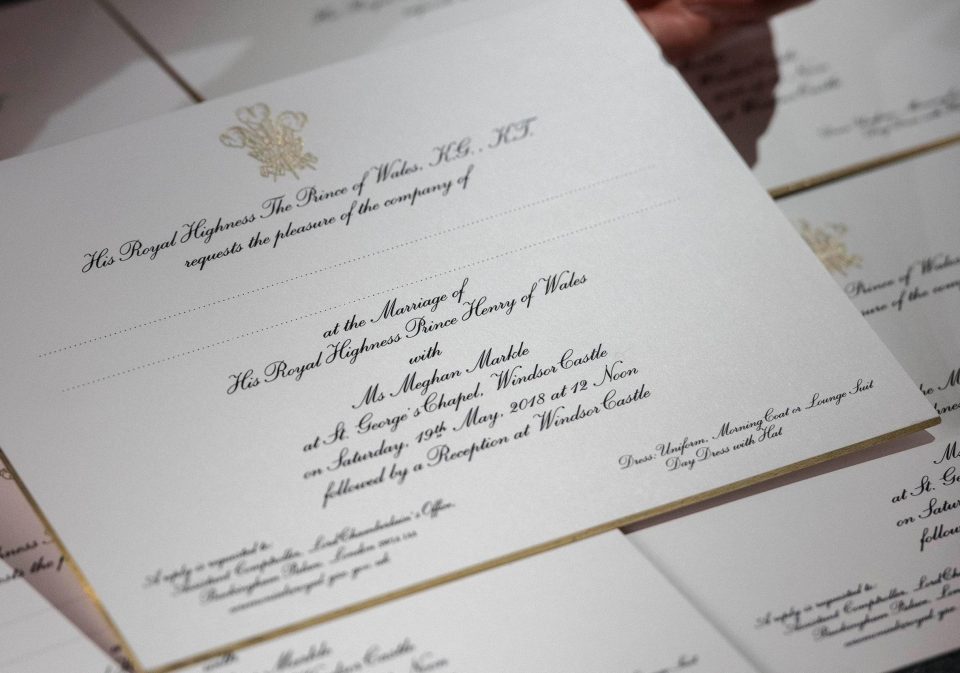 His Royal Highness The Prince of Wales, K.G., K.T.
requests the pleasure of the company of
at the Marriage of
His Royal Highness Prince Henry of Wales
with
Ms Meghan Markle
at St. George's Chapel, Windsor Castle
on Saturday, 19th May, 2018 at 12 Noon
followed by a Reception at Windsor Castle
Dress: Uniform, Morning Coat or Lounge Suit
Day Dress with Hat
A reply is requested to:
Assistant Comptroller, Lord Chamberlain's Office,
Buckingham Palace, London
Prince of Wales
the M
Ms
at St. G
on Satur
follow
A reply is requested to:
Assistant Comptroller, Lord
Buckingham Palace, Lon
with
Markle
Windsor Castle
12 Noon